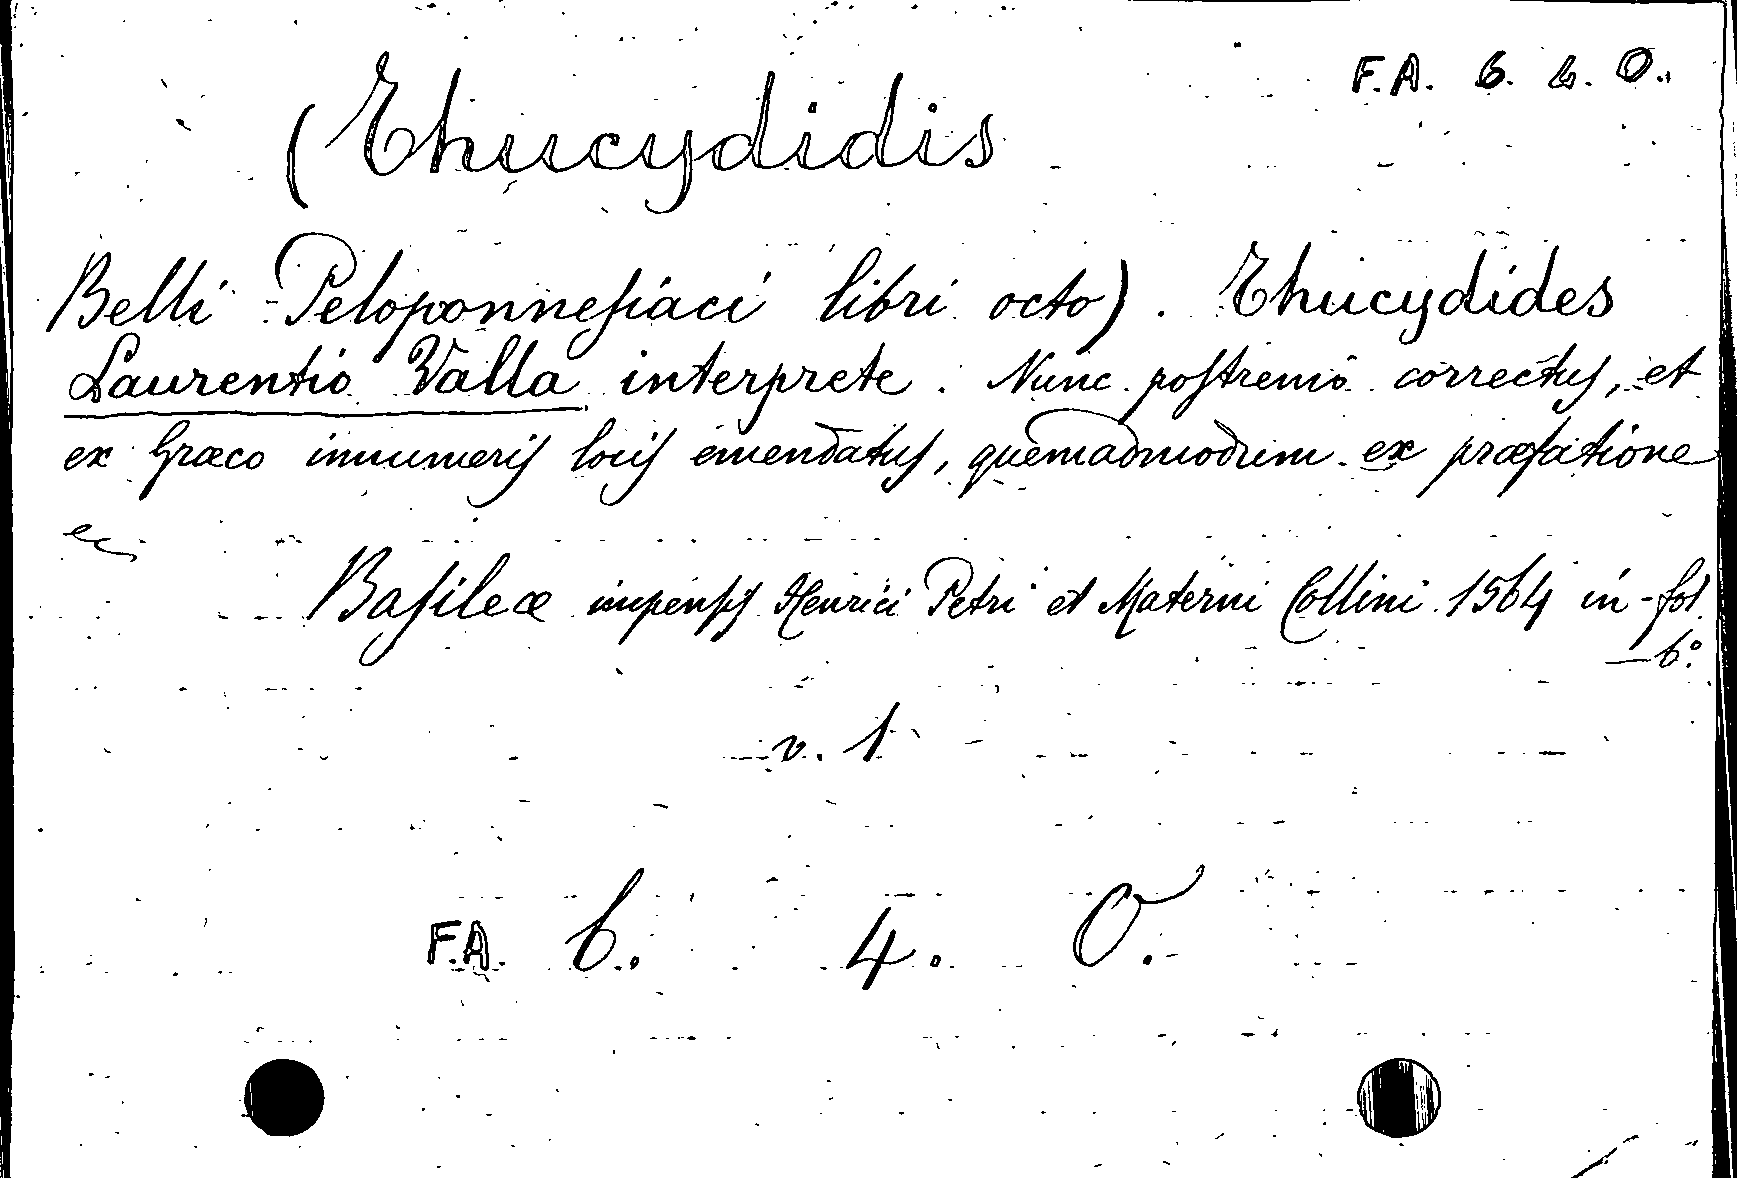 F.A. 6. 4. O.
(Thucydidis
Belli Peloponnesiaci libri octo). Thucydides
Laurentio Valla interprete. Nunc postremò correctus, et
ex Græco innumeris locis emendatus, quemadmodum ex præfatione
ec
Basileæ impensis Henrici Petri et Materni Collini 1564 in-fol.
— 6°.
v. 1
F.A. 6. 4. O.